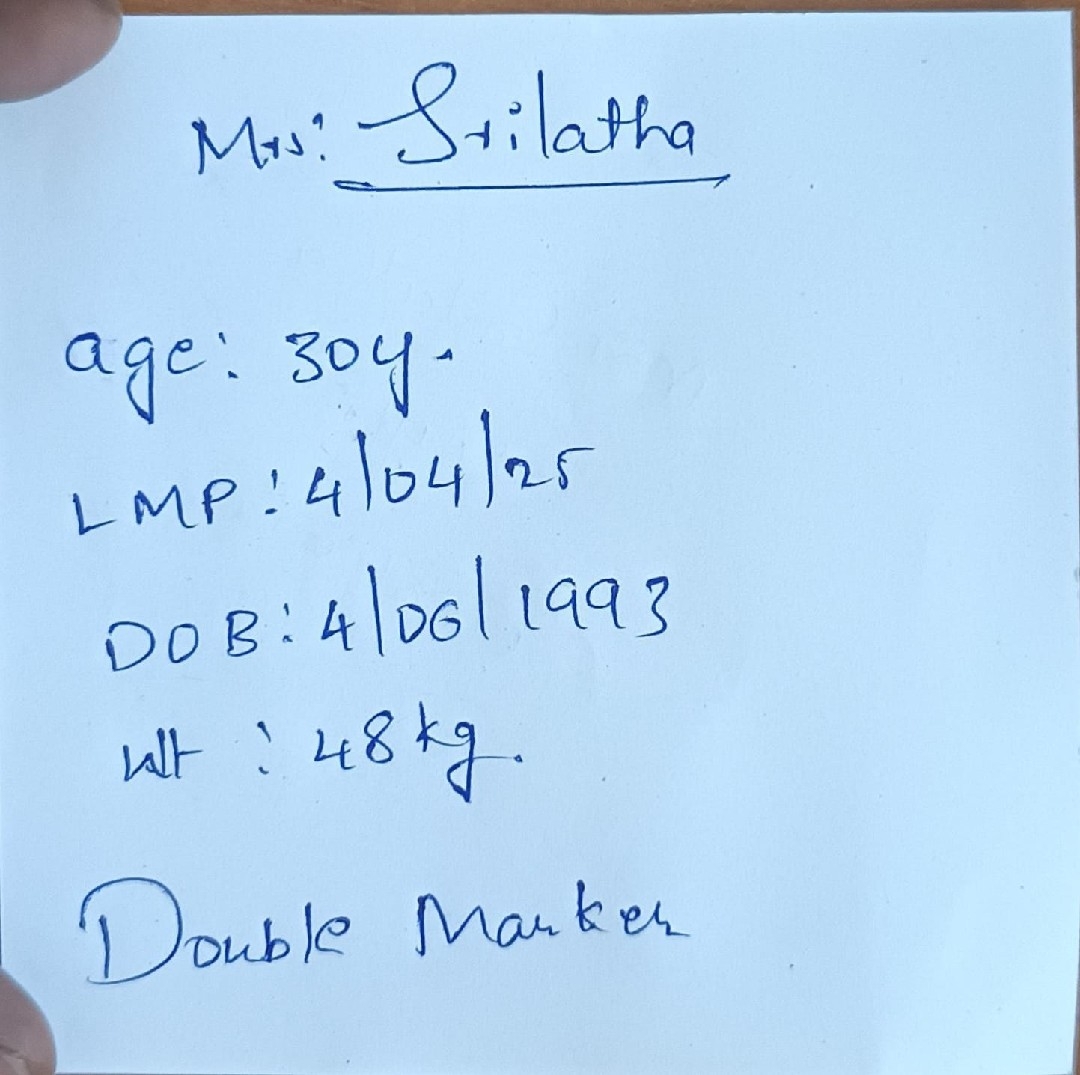 Mrs: Srilatha
age: 30y.
LMP: 4/04/25
DOB: 4/06/1993
Wt: 48kg.
Double Marker